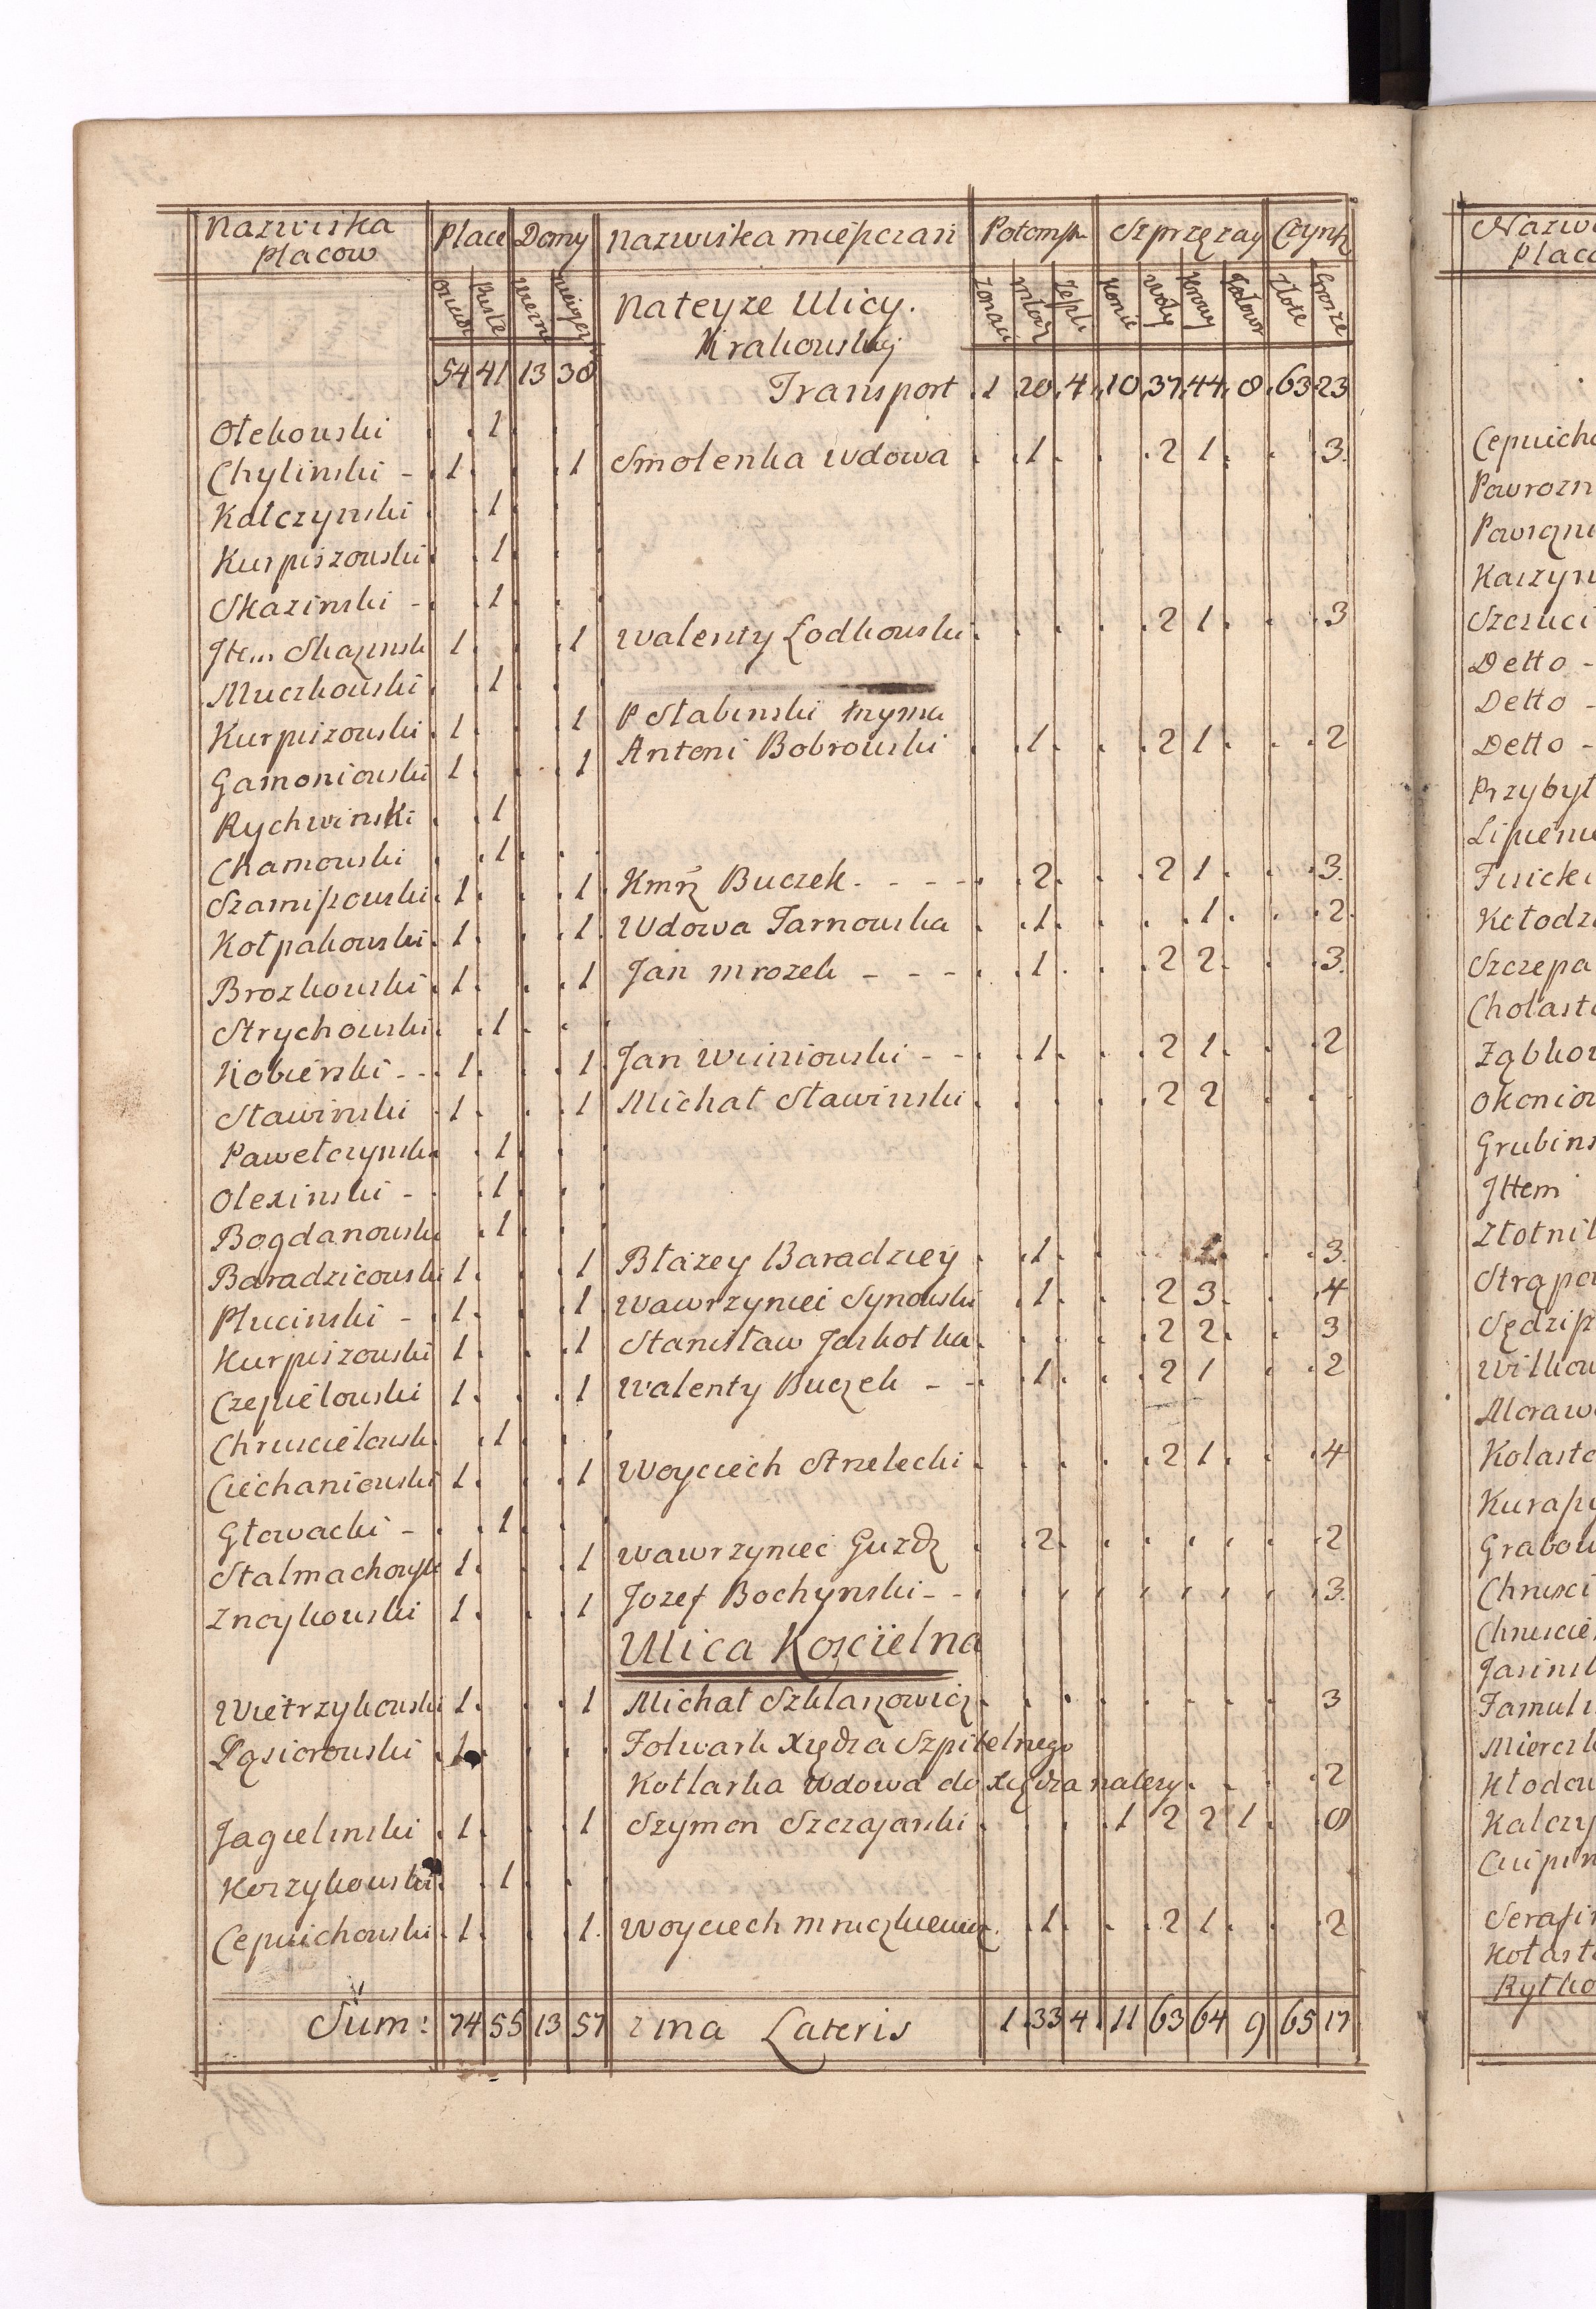 Nazwiska placow | Place | Domy | Nazwiska mieyszczan | Potomst | Szprzęzay | Czynsz
Puste | Zonaci | Konie | woły | Krowy | Złote | Grosze
Nateyze Ulicy.
Krakowskiey
54 41 13 38 Transport 1 20 4 10 37 44 8 63 23
Ołekowski 1
Chylinski - 1 1 Smolenka Wdowa 1 2 1 3
Kałczynski 1
Kurpiszowski 1
Skazinski - 1
Jtem Skazinski 1 1 Walenty Łodkowski 2 1 3
Muczkowski 1
Kurpiszowski 1 1 P Słabinski trzyma
Gamoniowski 1 1 Antoni Bobrowski 1 2 1 2
Rychwinski 1
Chamowski 1
Szamiszowski 1 1 Kmrz Buczek 2 2 1 3
Kołpakowski 1 1 Wdowa Tarnowska 1 1 2
Brozkowski 1 1 Jan mrozek - - - 1 2 2 3
Strychowski 1
Kobierski - - 1 1 Jan Wisniowski - - 1 2 1 2
Sławinski 1 1 Michał Sławinski 2 2
Pawełczynski 1
Olexinski - 1
Bogdanowski 1
Baradzieowski 1 1 Błazey Baradziey 1 1 3
Plucinski - 1 1 Wawrzyniec Synowski 1 2 3 4
Kurpiszowski 1 1 Stanisław Jaskołka 2 2 3
Czepielowski 1 1 Walenty Buczek - - 1 2 1 2
Chruscielowski 1
Ciechaniowski 1 1 Woyciech Strzelecki 2 1 4
Głowacki - 1
Stalmachowski 1 1 Wawrzyniec Guzdz 2 2
Zncykowski 1 1 Jozef Bochynski - - 3
Ulica Koscielna
Wietrzykowski 1 1 Michał Szklanowicz 3
Gąsiorowski 1 Folwark Xiędza Szpitelnego
Kotlarka Wdowa do Xiędza nalezy 2
Jagielinski 1 1 Szymon Szczajanski 1 2 2 1 8
Korzykowski 1
Cepuichowski 1 1 Woyciech mruczkiewicz 1 2 1 2
Sum: 74 55 13 57 ma Lateris 1 33 4 11 63 64 9 65 17
Powrozn
Kaczyn
Szczuci
Detto -
Detto -
Detto -
Przybył
Szczepa
Grubins
Jttem
Złotnik
Wilkow
Kolasto
Grabow
Chrusci
Chruscie
Jasinsk
Famuli
Mierczk
Kłodow
Kalczy
Serafin
Kołast
Rytko